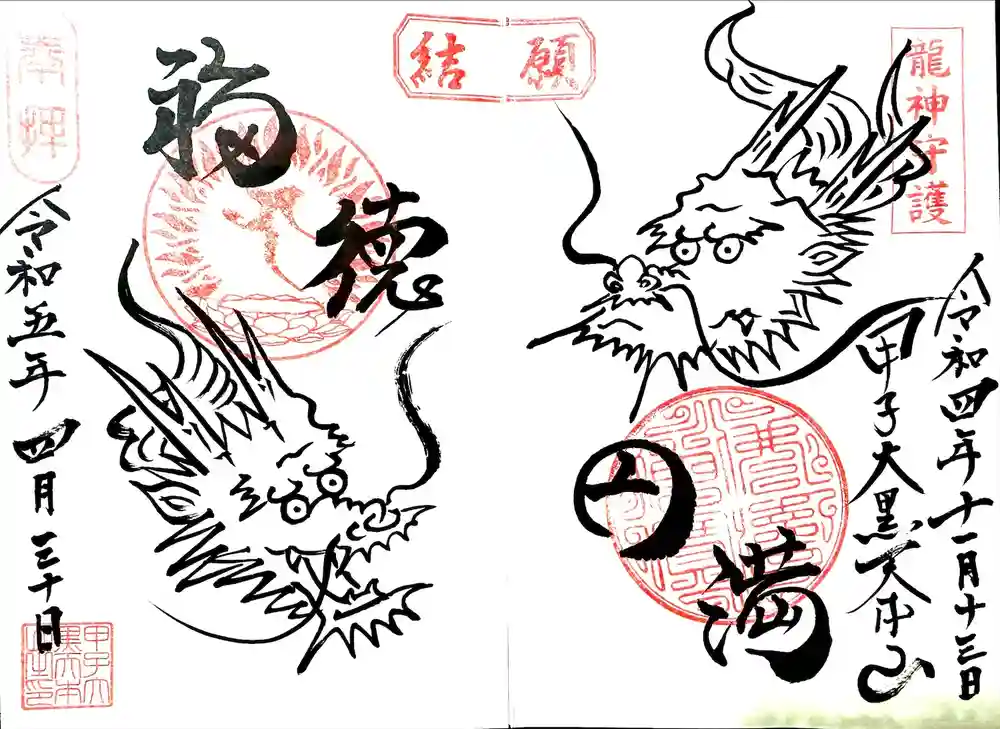 龍神守護
令和四年十一月十三日
甲子大黒天本山
結願
円満
福徳
奉拝
令和五年四月三十日
甲子大
黒天本
山之印